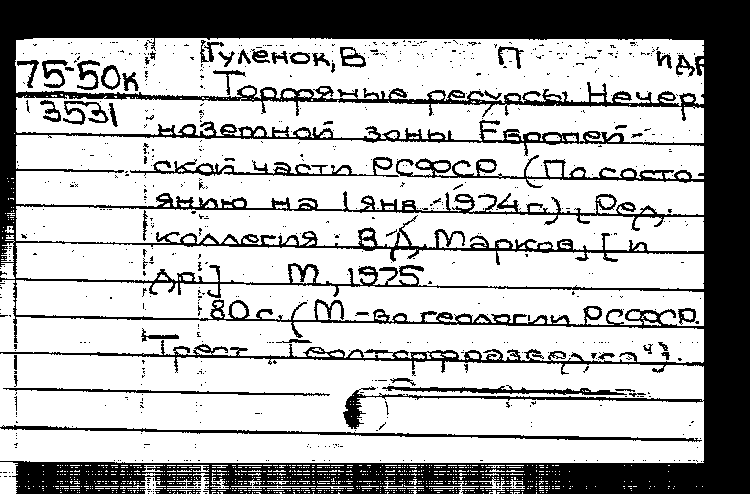 Гуленок, В П и др
75-50к
3531
Торфяные ресурсы Нечер-
ноземной зоны Европей-
ской части РСФСР. (По состо-
янию на 1 янв. 1974 г.). Ред.
коллегия: В.Д. Марков, [и
др.]. М., 1975.
80 с. (М-во геологии РСФСР.
Трест "Геолторфразведка").